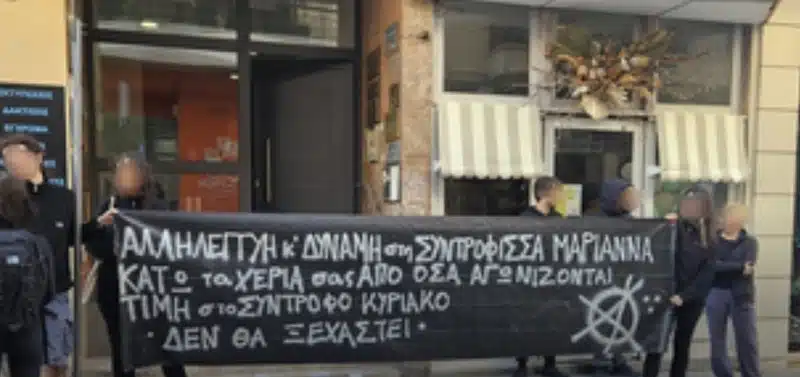 ΕΚΤΥΠΩΣΕΙΣ
ΑΛΛΗΛΕΓΓΥΗ κ' ΔΥΝΑΜΗ στη ΣΥΝΤΡΟΦΙΣΣΑ ΜΑΡΙΑΝΝΑ
ΚΑΤΩ τα ΧΕΡΙΑ σας ΑΠΟ ΟΣΑ ΑΓΩΝΙΖΟΝΤΑΙ
ΤΙΜΗ στο ΣΥΝΤΡΟΦΟ ΚΥΡΙΑΚΟ
· ΔΕΝ ΘΑ ΞΕΧΑΣΤΕΙ ·